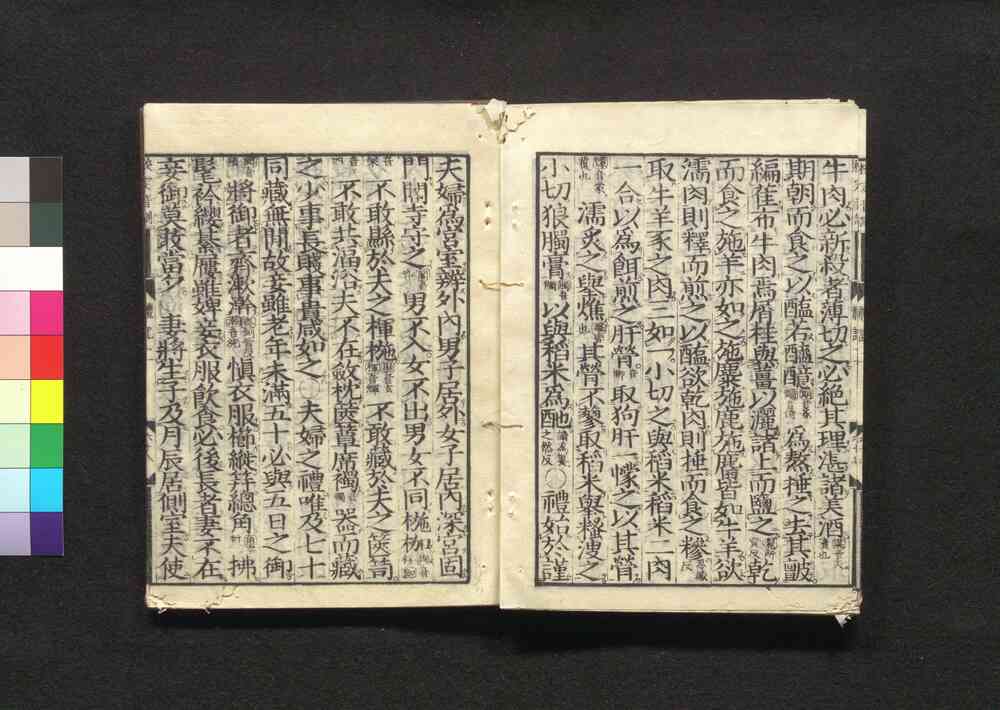 牛肉必新殺者薄切之必絶其理湛諸美酒
期朝而食之以醢若醯醷爲熬捶之去其皽
編萑布牛肉焉屑桂與薑以灑諸上而鹽之乾
而食之施羊亦如之施麋施鹿施麕皆如牛羊欲
濡肉則釋而煎之以醢欲乾肉則捶而食之糝
取牛羊豕之肉三如一小切之與稻米稻米二肉
一合以爲餌煎之肝膋取狗肝一幪之以其膋
濡炙之擧燋其膋不蓼取稻米擧糔溲之
小切狼臅膏以與稻米爲酏○禮始於謹
夫婦爲宮室辨外內男子居外女子居內深宮固
門閽寺守之男不入女不出男女不同椸枷
不敢縣於夫之楎椸不敢藏於夫之篋笥
不敢共湢浴夫不在斂枕篋簟席襡器而藏
之少事長賤事貴咸如之○夫婦之禮唯及七十
同藏無閒故妾雖老年未滿五十必與五日之御
將御者齊漱澣愼衣服櫛縰笄總角拂
髦衿纓綦屨雖婢妾衣服飮食必後長者妻不在
妾御莫敢當夕○妻將生子及月辰居側室夫使